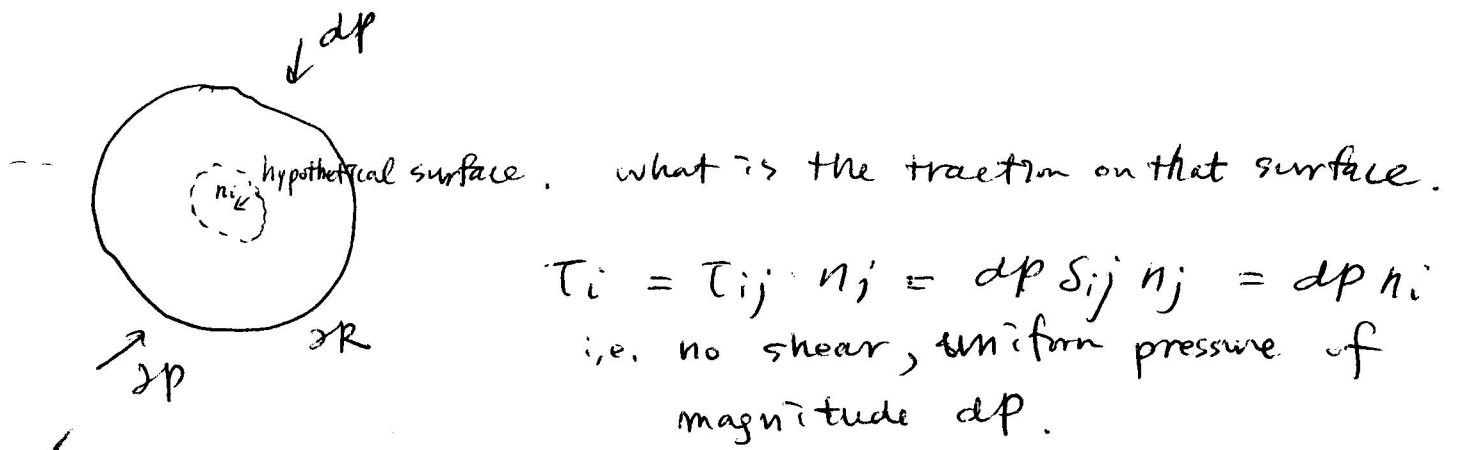 dp
hypothetical surface. what is the traction on that surface.
ni
τi = τij nj = dp δij nj = dp ni
i.e. no shear, uniform pressure of
∂R
∂p
magnitude dp.